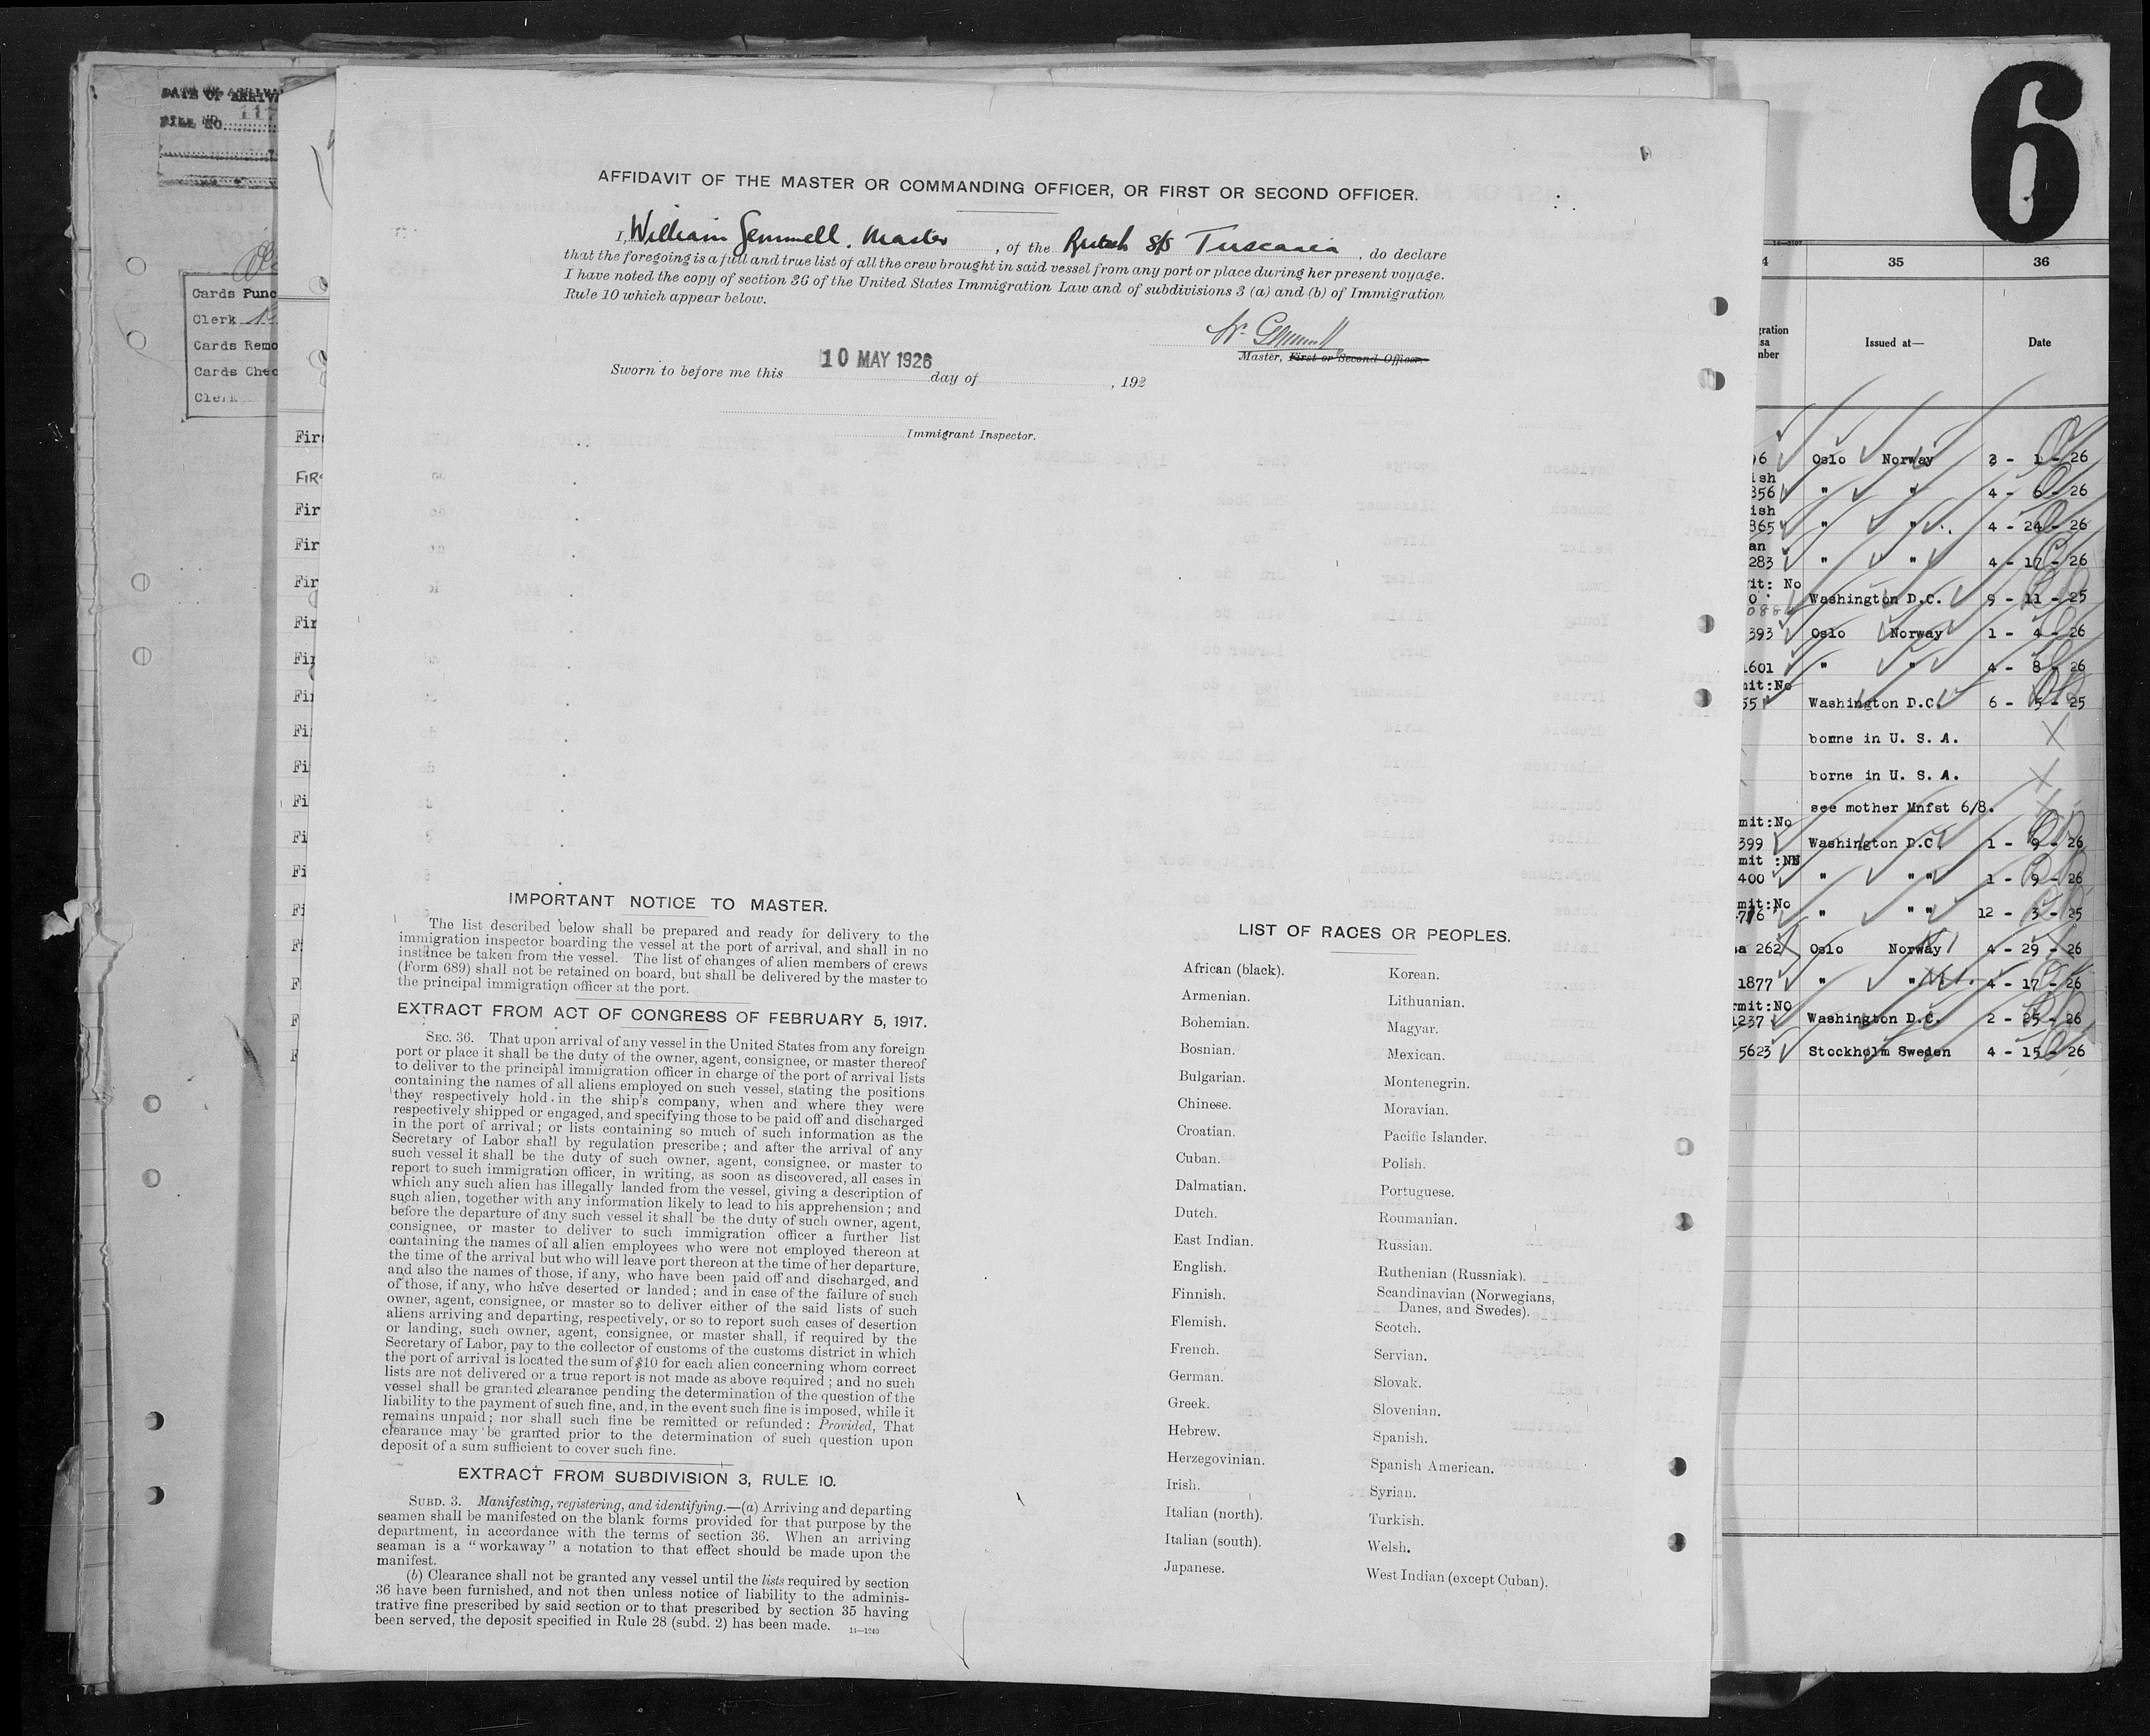 6
DATE OF ARRIVA
FILE NO. 117
Cards Punc
Clerk
Cards Remo
Cards Chec
Clerk
AFFIDAVIT OF THE MASTER OR COMMANDING OFFICER, OR FIRST OR SECOND OFFICER.
I, William Gemmell. Master, of the British s/s Tuscania, do declare
that the foregoing is a full and true list of all the crew brought in said vessel from any port or place during her present voyage.
I have noted the copy of section 36 of the United States Immigration Law and of subdivisions 3 (a) and (b) of Immigration
Rule 10 which appear below.
W. Gemmell
Master, First or Second Officer.
Sworn to before me this 10 MAY 1926 day of , 192
Immigrant Inspector.
IMPORTANT NOTICE TO MASTER.
The list described below shall be prepared and ready for delivery to the
immigration inspector boarding the vessel at the port of arrival, and shall in no
instance be taken from the vessel. The list of changes of alien members of crews
(Form 689) shall not be retained on board, but shall be delivered by the master to
the principal immigration officer at the port.
EXTRACT FROM ACT OF CONGRESS OF FEBRUARY 5, 1917.
SEC. 36. That upon arrival of any vessel in the United States from any foreign
port or place it shall be the duty of the owner, agent, consignee, or master thereof
to deliver to the principal immigration officer in charge of the port of arrival lists
containing the names of all aliens employed on such vessel, stating the positions
they respectively hold in the ship's company, when and where they were
respectively shipped or engaged, and specifying those to be paid off and discharged
in the port of arrival; or lists containing so much of such information as the
Secretary of Labor shall by regulation prescribe; and after the arrival of any
such vessel it shall be the duty of such owner, agent, consignee, or master to
report to such immigration officer, in writing, as soon as discovered, all cases in
which any such alien has illegally landed from the vessel, giving a description of
such alien, together with any information likely to lead to his apprehension; and
before the departure of any such vessel it shall be the duty of such owner, agent,
consignee, or master to deliver to such immigration officer a further list
containing the names of all alien employees who were not employed thereon at
the time of the arrival but who will leave port thereon at the time of her departure,
and also the names of those, if any, who have been paid off and discharged, and
of those, if any, who have deserted or landed; and in case of the failure of such
owner, agent, consignee, or master so to deliver either of the said lists of such
aliens arriving and departing, respectively, or so to report such cases of desertion
or landing, such owner, agent, consignee, or master shall, if required by the
Secretary of Labor, pay to the collector of customs of the customs district in which
the port of arrival is located the sum of $10 for each alien concerning whom correct
lists are not delivered or a true report is not made as above required; and no such
vessel shall be granted clearance pending the determination of the question of the
liability to the payment of such fine, and, in the event such fine is imposed, while it
remains unpaid; nor shall such fine be remitted or refunded: Provided, That
clearance may be granted prior to the determination of such question upon
deposit of a sum sufficient to cover such fine.
EXTRACT FROM SUBDIVISION 3, RULE 10.
SUBD. 3. Manifesting, registering, and identifying.—(a) Arriving and departing
seamen shall be manifested on the blank forms provided for that purpose by the
department, in accordance with the terms of section 36. When an arriving
seaman is a "workaway" a notation to that effect should be made upon the
manifest.
(b) Clearance shall not be granted any vessel until the lists required by section
36 have been furnished, and not then unless notice of liability to the adminis-
trative fine prescribed by said section or to that prescribed by section 35 having
been served, the deposit specified in Rule 28 (subd. 2) has been made.
14—1240
LIST OF RACES OR PEOPLES.
African (black).
Armenian.
Bohemian.
Bosnian.
Bulgarian.
Chinese.
Croatian.
Cuban.
Dalmatian.
Dutch.
East Indian.
English.
Finnish.
Flemish.
French.
German.
Greek.
Hebrew.
Herzegovinian.
Irish.
Italian (north).
Italian (south).
Japanese.
Korean.
Lithuanian.
Magyar.
Mexican.
Montenegrin.
Moravian.
Pacific Islander.
Polish.
Portuguese.
Roumanian.
Russian.
Ruthenian (Russniak).
Scandinavian (Norwegians,
Danes, and Swedes).
Scotch.
Servian.
Slovak.
Slovenian.
Spanish.
Spanish American.
Syrian.
Turkish.
Welsh.
West Indian (except Cuban).
4 35 36
gration
sa
nber
Issued at— Date
96 Oslo Norway 3 - 1 - 26
ish
356 " " 4 - 6 - 26
ish
865 " " 4 - 24 - 26
an
283 " " 4 - 17 - 26
it: No
Washington D.C. 9 - 11 - 25
393 Oslo Norway 1 - 4 - 26
1601 " " 4 - 8 - 26
mit:No
551 Washington D.C. 6 - 5 - 25
borne in U. S. A.
borne in U. S. A.
see mother Mnfst 6/8.
mit:No
399 Washington D.C. 1 - 9 - 26
mit :NN
400 " " " 1 - 9 - 26
mit:No
776 " " " 12 - 3 - 25
sa 262 Oslo Norway 4 - 29 - 26
1877 " " 4 - 17 - 26
rmit:NO
1237 Washington D.C. 2 - 25 - 26
5623 Stockholm Sweden 4 - 15 - 26